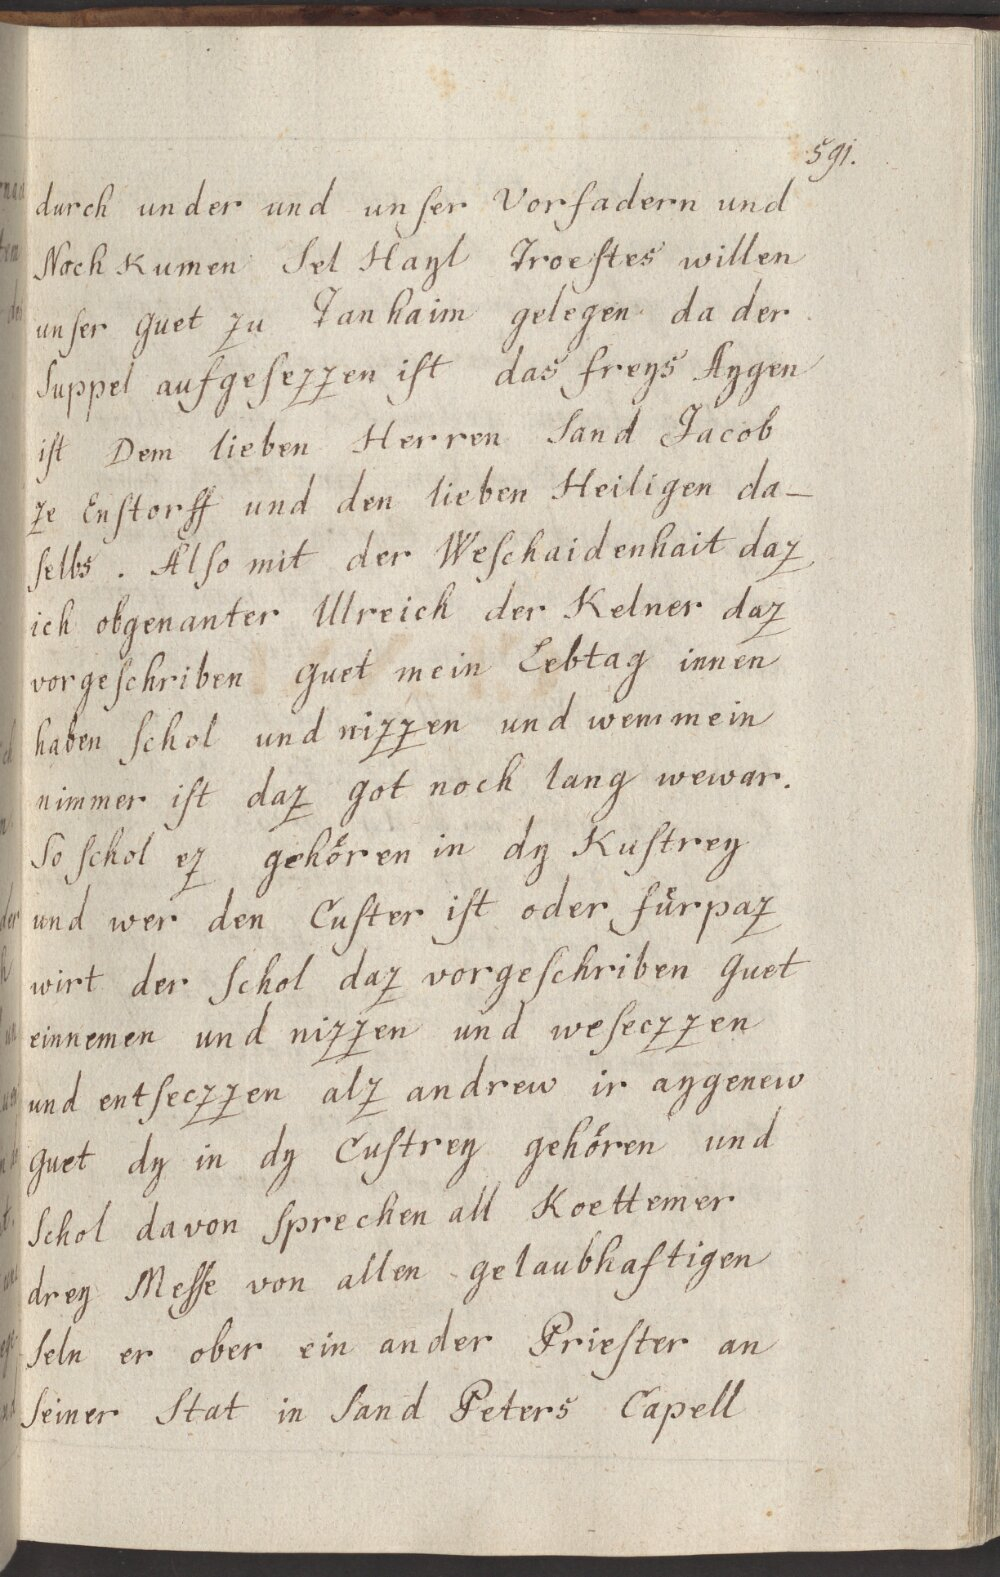 591.
durch under und unser Vorfadern und
Nochkumen Sel Hayl Troestes willen
unser guet zu Tanhaim gelegen da der
Suppel aufgesezzen ist das freys Aygen
ist Dem lieben Herren Sand Jacob
ze Enstorff und den lieben Heiligen da-
selbs. Also mit der Weschaidenhait daz
ich obgenanter Ulreich der Kelner daz
vorgeschriben guet mein Lebtag innen
haben schol und nizzen und wem mein
nimmer ist daz got noch lang wewar.
So schol ez gehören in dy Kustrey
und wer den Custer ist oder fürpaz
wirt der schol daz vorgeschriben guet
einnemen und nizzen und weseczzen
und entseczzen alz andrew ir aygenew
guet dy in dy Custrey gehören und
schol davon sprechen all Koettemer
drey Messe von allen gelaubhaftigen
seln er ober ein ander Priester an
seiner Stat in Sand Peters Capell